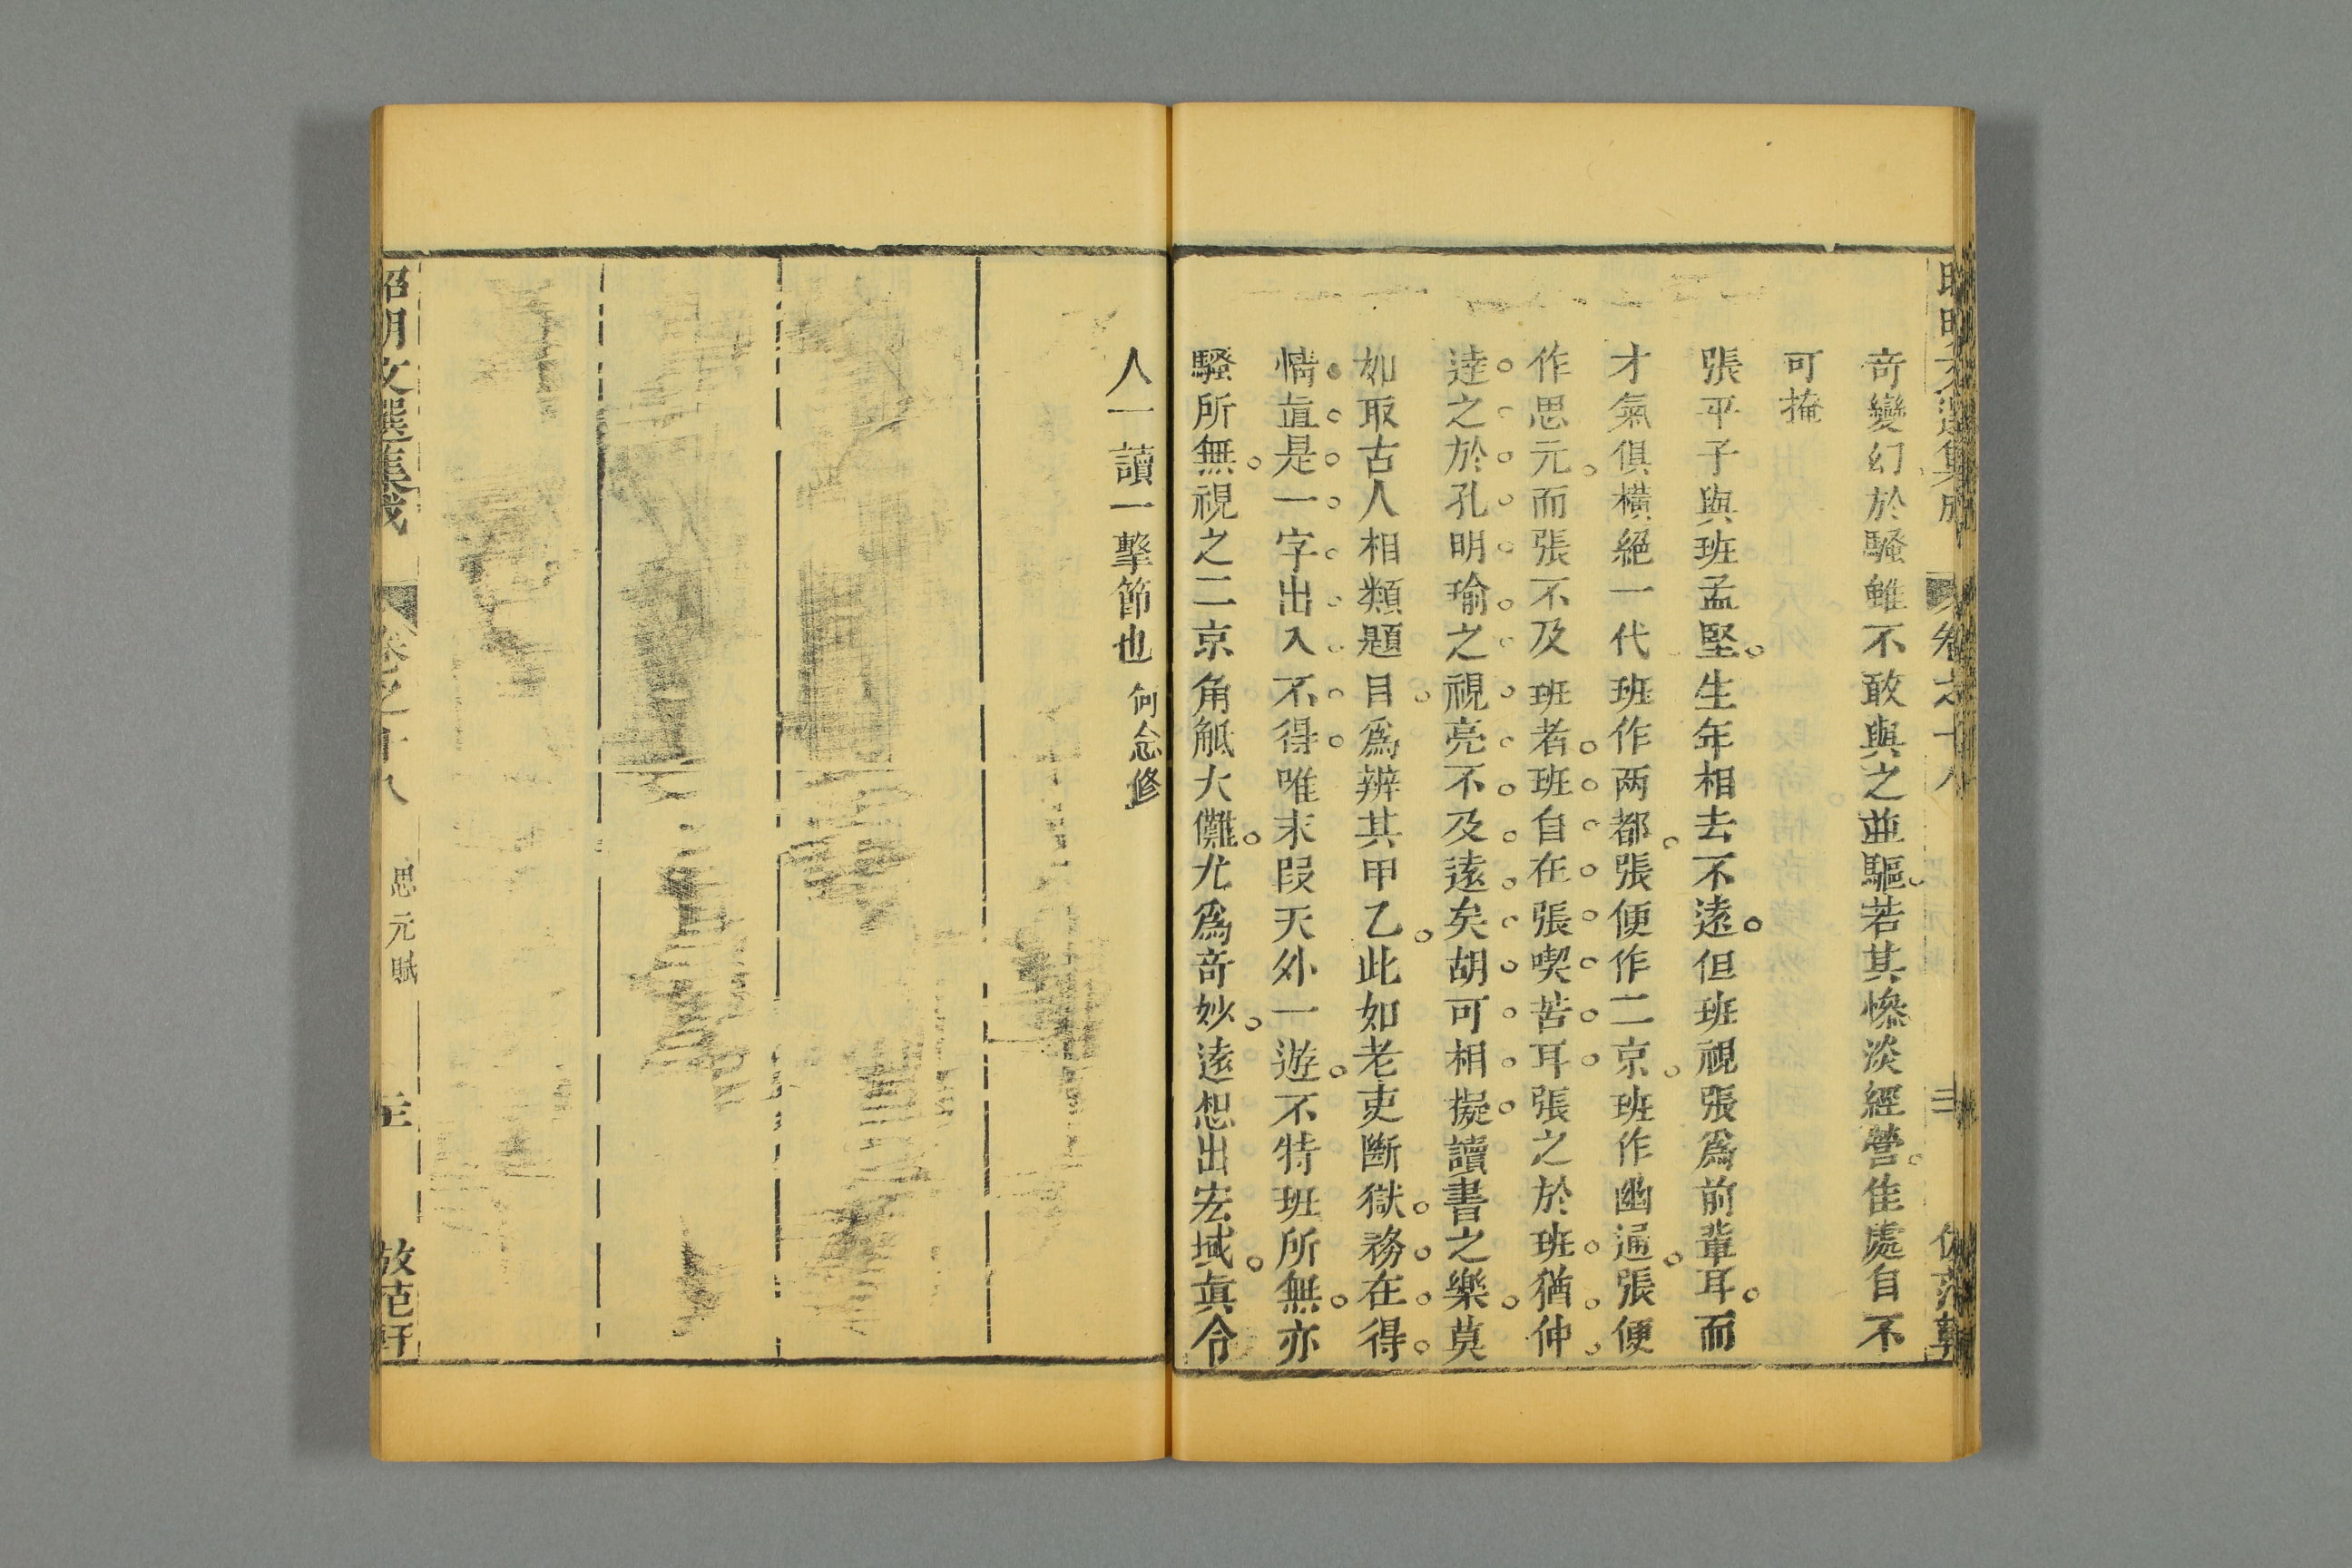 昭明文選集成 卷之十八
奇變幻於騷雖不敢與之並驅若其慘淡經營佳處自不
可掩
張平子與班孟堅生年相去不遠但班視張爲前輩耳而
才氣俱橫絕一代班作两都張便作二京班作幽通張便
作思元而張不及班者班自在張喫苦耳張之於班猶仲
逹之於孔明瑜之視亮不及遠矣胡可相擬讀書之樂莫
如取古人相類題目爲辨其甲乙此如老吏斷獄務在得
情眞是一字出入不得唯末叚天外一遊不特班所無亦
騷所無視之二京角觝大儺尤爲奇妙遠想出宏域眞令
人一讀一擊節也 何念修
昭明文選集成 卷之十八 思元賦 放范軒